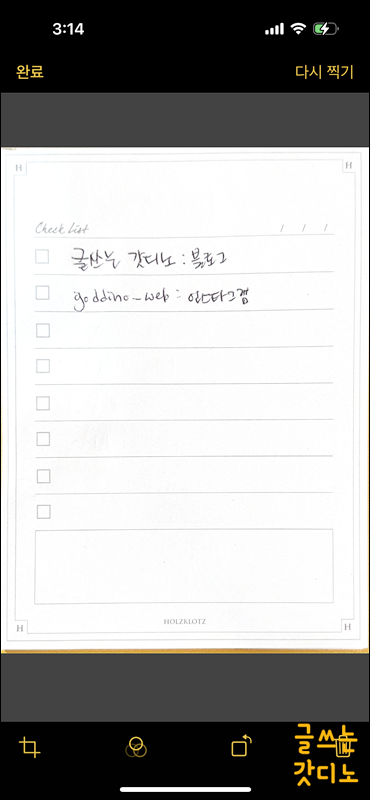 3:14
완료 다시 찍기
H H
Check List / / /
글쓰는 갓디노 : 블로그
goddino_web : 인스타그램
H HOLZKLOTZ H
글쓰는
갓디노